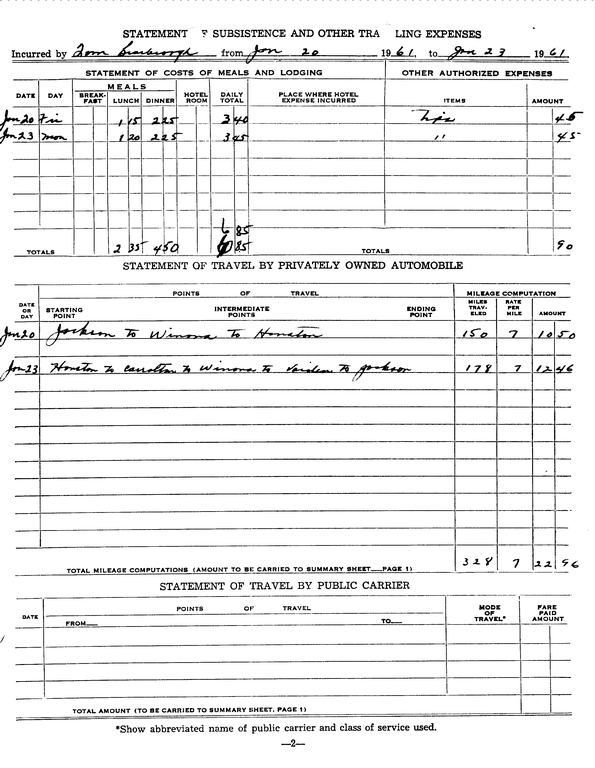 STATEMENT F SUBSISTENCE AND OTHER TRA LING EXPENSES
Incurred by Tom Scarbrough from Jan 20 1961, to Jan 23 1961
STATEMENT OF COSTS OF MEALS AND LODGING OTHER AUTHORIZED EXPENSES
MEALS
DATE DAY BREAK-FAST LUNCH DINNER HOTEL ROOM DAILY TOTAL PLACE WHERE HOTEL EXPENSE INCURRED ITEMS AMOUNT
Jan 20 Fri 1 15 2 25 3 40 Tips 45
Jan 23 Mon 1 20 2 25 3 45 " 45
6 85
TOTALS 2 35 4 50 6 85 TOTALS 90
STATEMENT OF TRAVEL BY PRIVATELY OWNED AUTOMOBILE
POINTS OF TRAVEL MILEAGE COMPUTATION
DATE OR DAY STARTING POINT INTERMEDIATE POINTS ENDING POINT MILES TRAV-ELED RATE PER MILE AMOUNT
Jan 20 Jackson to Winona to Houston 150 7 10 50
Jan 23 Houston to Carrollton to Winona to Vaiden to Jackson 178 7 12 46
TOTAL MILEAGE COMPUTATIONS (AMOUNT TO BE CARRIED TO SUMMARY SHEET PAGE 1) 328 7 22 96
STATEMENT OF TRAVEL BY PUBLIC CARRIER
DATE POINTS OF TRAVEL MODE OF TRAVEL* FARE PAID AMOUNT
FROM TO
TOTAL AMOUNT (TO BE CARRIED TO SUMMARY SHEET, PAGE 1)
*Show abbreviated name of public carrier and class of service used.
—2—